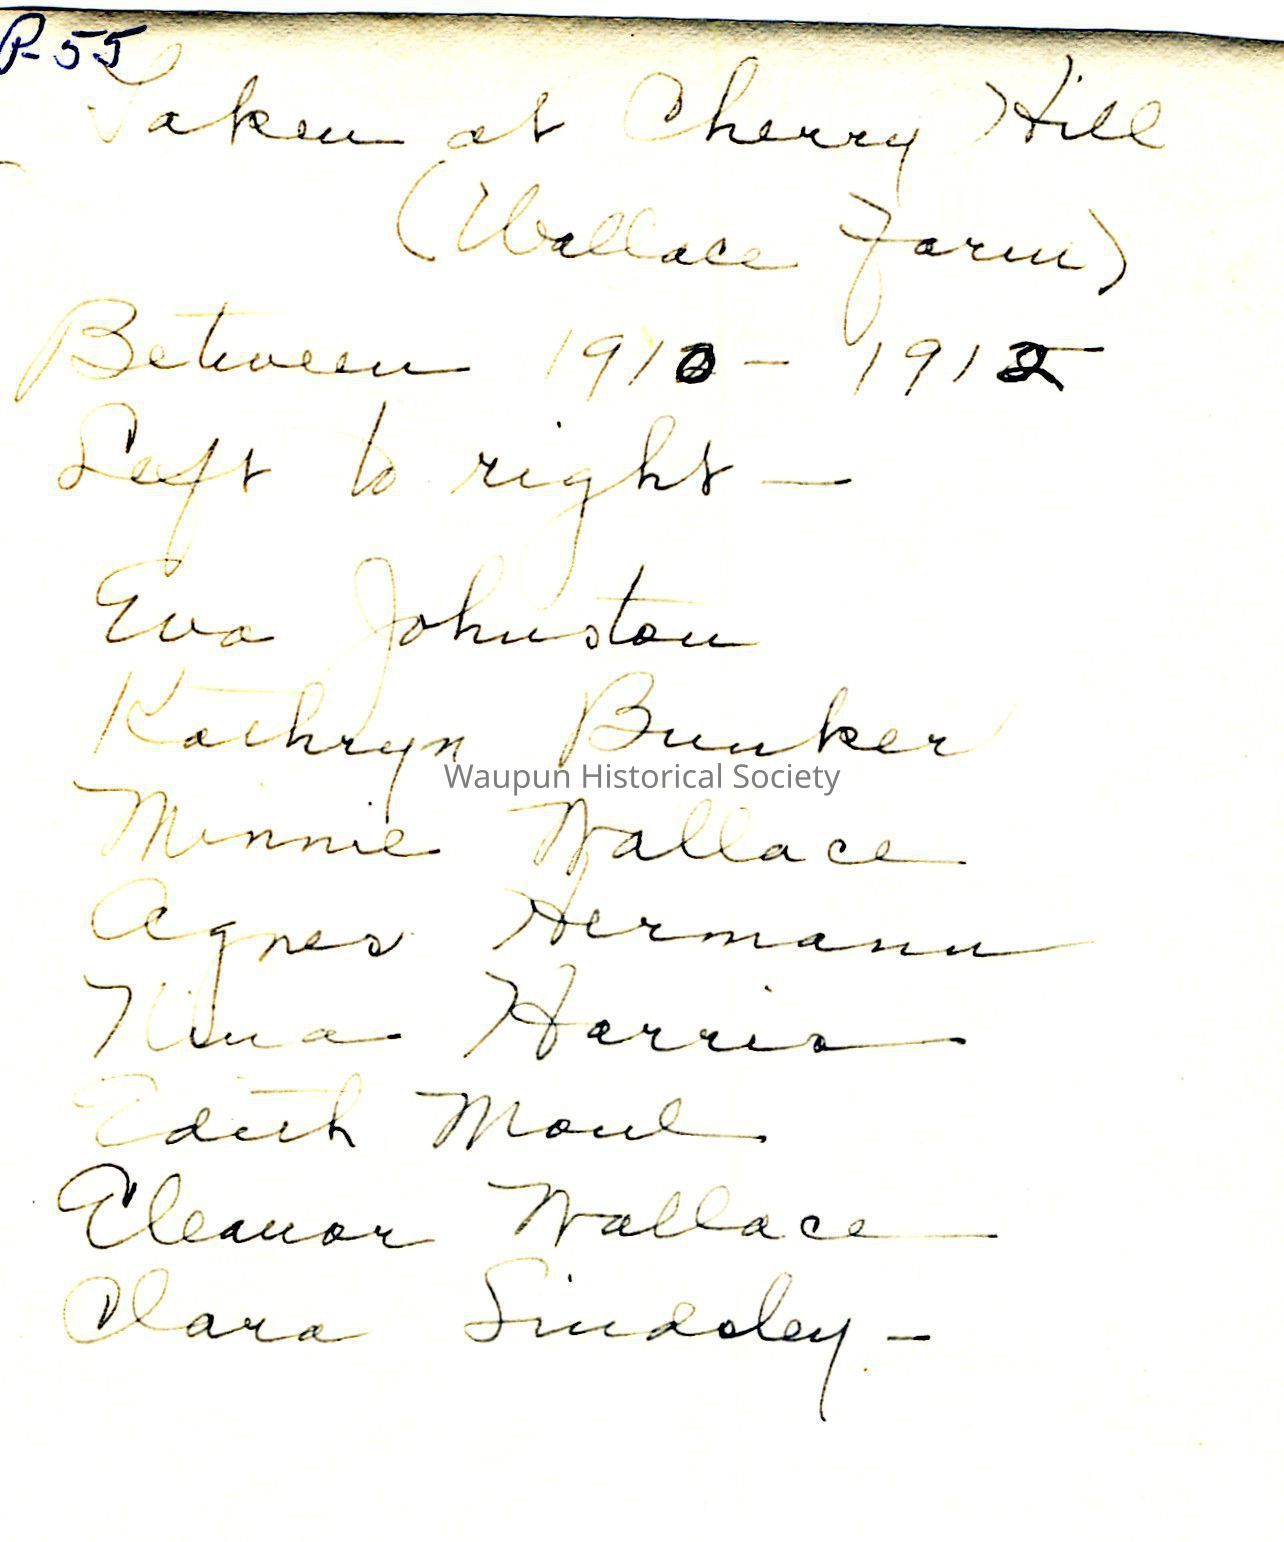 P-55
Taken at Cherry Hill
(Wallace Farm)
Between 1910 - 1912
Left to right —
Eva Johnston
Kathryn Bunker
Waupun Historical Society
Minnie Wallace
Agnes Hermann
Nina Harris
Edith Moul
Eleanor Wallace
Clara Lindsley -